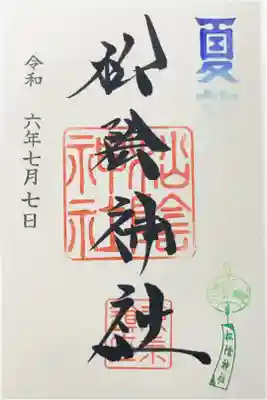 夏詣
松陰神社
令和 六年七月七日
松陰神社
松陰神社